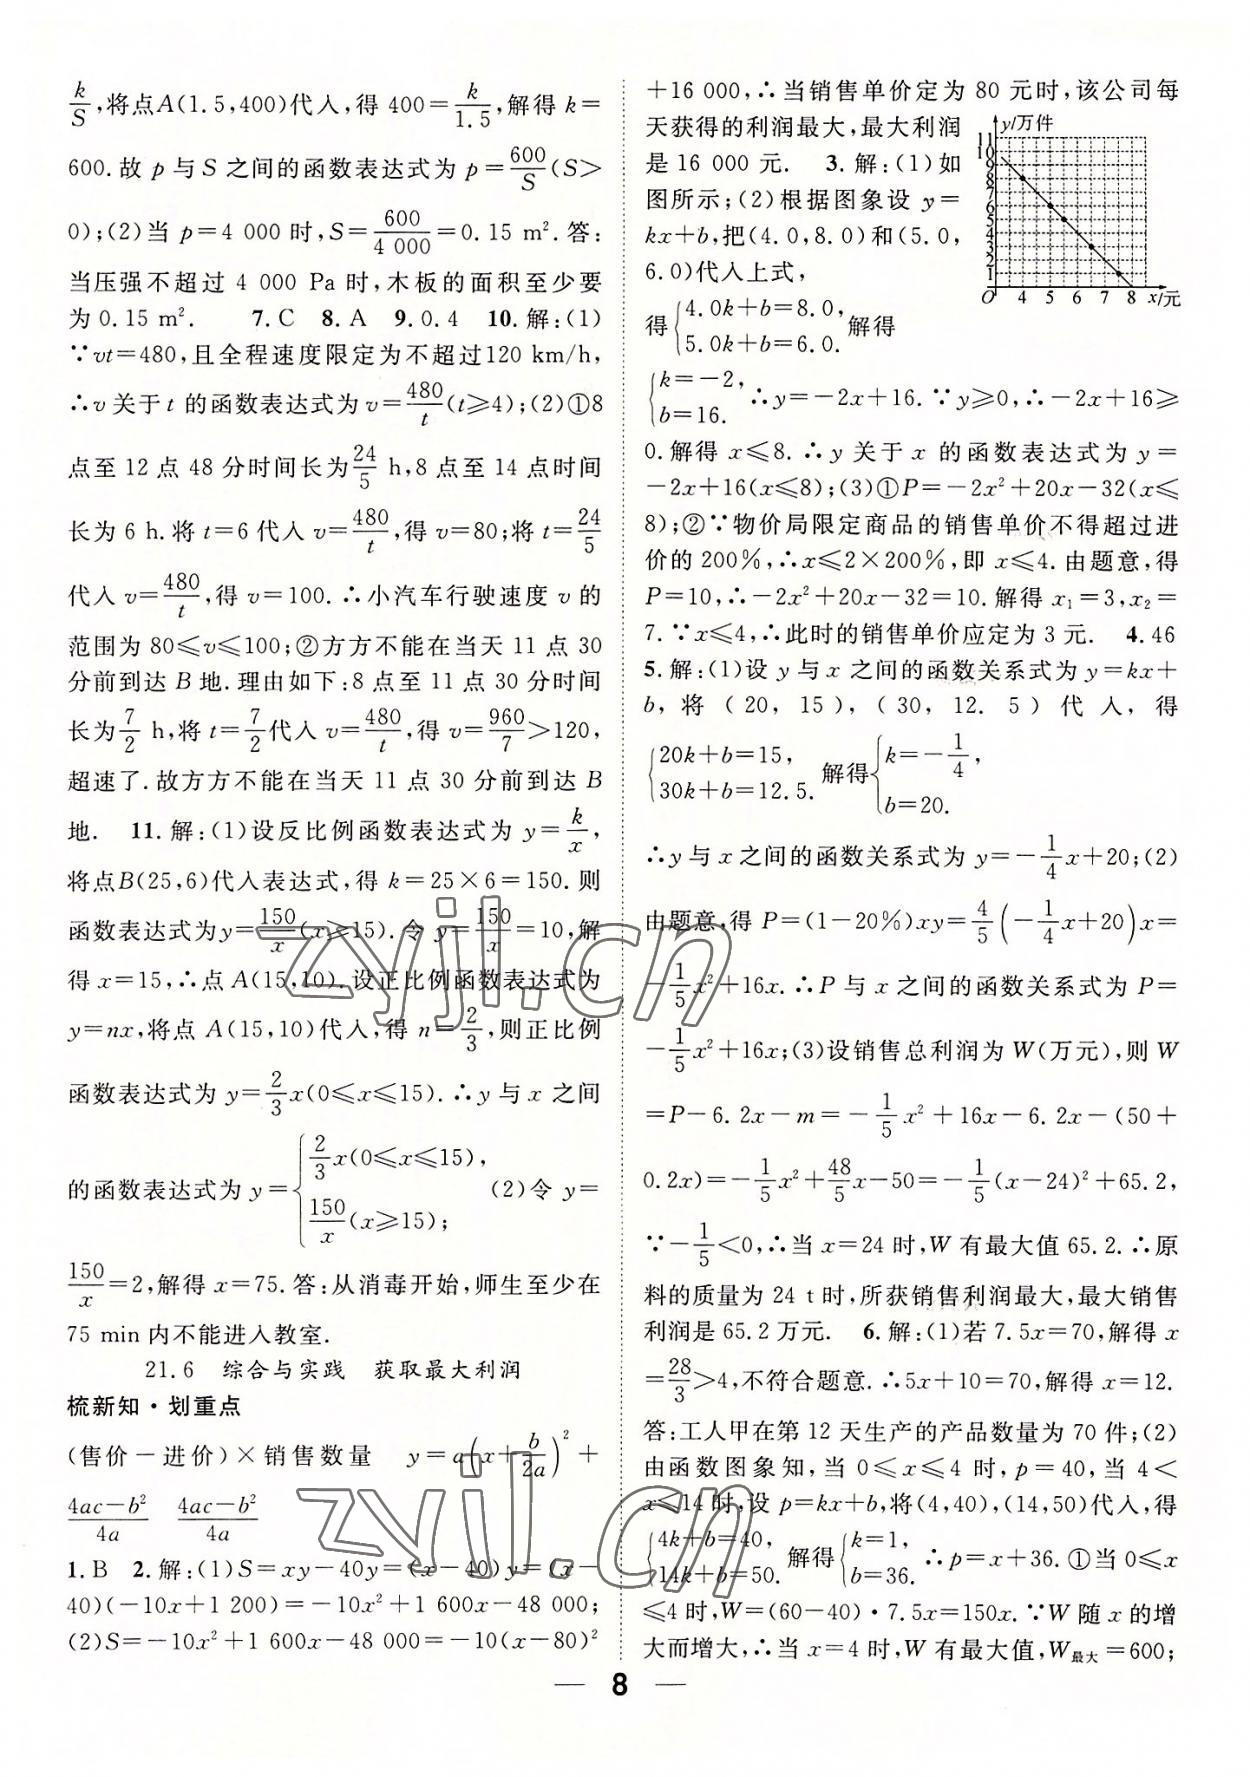 k/S,将点A(1.5,400)代入,得 400=k/1.5,解得 k=
600.故 p 与 S 之间的函数表达式为 p=600/S(S>
0);(2)当 p=4 000 时,S=600/4 000=0.15 m².答:
当压强不超过 4 000 Pa 时,木板的面积至少要
为 0.15 m². 7.C 8.A 9.0.4 10.解:(1)
∵vt=480,且全程速度限定为不超过120 km/h,
∴v 关于 t 的函数表达式为 v=480/t(t⩾4);(2)①8
点至 12 点 48 分时间长为24/5 h,8 点至 14 点时间
长为 6 h.将 t=6 代入 v=480/t,得 v=80;将 t=24/5
代入 v=480/t,得 v=100.∴小汽车行驶速度 v 的
范围为 80⩽v⩽100;②方方不能在当天 11 点 30
分前到达 B 地.理由如下:8 点至 11 点 30 分时间
长为7/2 h,将 t=7/2代入 v=480/t,得 v=960/7>120,
超速了.故方方不能在当天 11 点 30 分前到达 B
地. 11.解:(1)设反比例函数表达式为 y=k/x,
将点B(25,6)代入表达式,得 k=25×6=150.则
函数表达式为y=150/x(x⩾15).令 y=150/x=10,解
得 x=15,∴点 A(15,10).设正比例函数表达式为
y=nx,将点 A(15,10)代入,得 n=2/3,则正比例
函数表达式为 y=2/3x(0⩽x⩽15).∴y 与 x 之间
的函数表达式为 y={2/3x(0⩽x⩽15), 150/x(x⩾15); (2)令 y=
150/x=2,解得 x=75.答:从消毒开始,师生至少在
75 min 内不能进入教室.
21.6 综合与实践 获取最大利润
梳新知·划重点
(售价-进价)×销售数量 y=a(x+b/2a)²+
4ac-b²/4a 4ac-b²/4a
1.B 2.解:(1)S=xy-40y=(x-40)y=(x-
40)(-10x+1 200)=-10x²+1 600x-48 000;
(2)S=-10x²+1 600x-48 000=-10(x-80)²
+16 000,∴当销售单价定为 80 元时,该公司每
天获得的利润最大,最大利润
是 16 000 元. 3.解:(1)如
图所示;(2)根据图象设 y=
kx+b,把(4.0,8.0)和(5.0,
6.0)代入上式,
y/万件
11
10
9
8
7
6
5
4
3
2
1
O 4 5 6 7 8 x/元
得{4.0k+b=8.0, 5.0k+b=6.0. 解得
{k=-2, b=16. ∴y=-2x+16.∵y⩾0,∴-2x+16⩾
0.解得 x⩽8.∴y 关于 x 的函数表达式为 y=
-2x+16(x⩽8);(3)①P=-2x²+20x-32(x⩽
8);②∵物价局限定商品的销售单价不得超过进
价的 200%,∴x⩽2×200%,即 x⩽4.由题意,得
P=10,∴-2x²+20x-32=10.解得 x₁=3,x₂=
7.∵x⩽4,∴此时的销售单价应定为 3 元. 4.46
5.解:(1)设 y 与 x 之间的函数关系式为 y=kx+
b,将(20,15),(30,12.5)代入,得
{20k+b=15, 30k+b=12.5. 解得{k=-1/4, b=20.
∴y 与 x 之间的函数关系式为 y=-1/4x+20;(2)
由题意,得 P=(1-20%)xy=4/5(-1/4x+20)x=
-1/5x²+16x.∴P 与 x 之间的函数关系式为 P=
-1/5x²+16x;(3)设销售总利润为 W(万元),则 W
=P-6.2x-m=-1/5x²+16x-6.2x-(50+
0.2x)=-1/5x²+48/5x-50=-1/5(x-24)²+65.2,
∵-1/5<0,∴当 x=24 时,W 有最大值 65.2.∴原
料的质量为 24 t 时,所获销售利润最大,最大销售
利润是 65.2 万元. 6.解:(1)若 7.5x=70,解得 x
=28/3>4,不符合题意.∴5x+10=70,解得 x=12.
答:工人甲在第 12 天生产的产品数量为 70 件;(2)
由函数图象知,当 0⩽x⩽4 时,p=40,当 4<
x⩽14 时,设 p=kx+b,将(4,40),(14,50)代入,得
{4k+b=40, 14k+b=50. 解得{k=1, b=36. ∴p=x+36.①当 0⩽x
⩽4 时,W=(60-40)·7.5x=150x.∵W 随 x 的增
大而增大,∴当 x=4 时,W 有最大值,W最大=600;
— 8 —
zyjl.cn
zyjl.cn